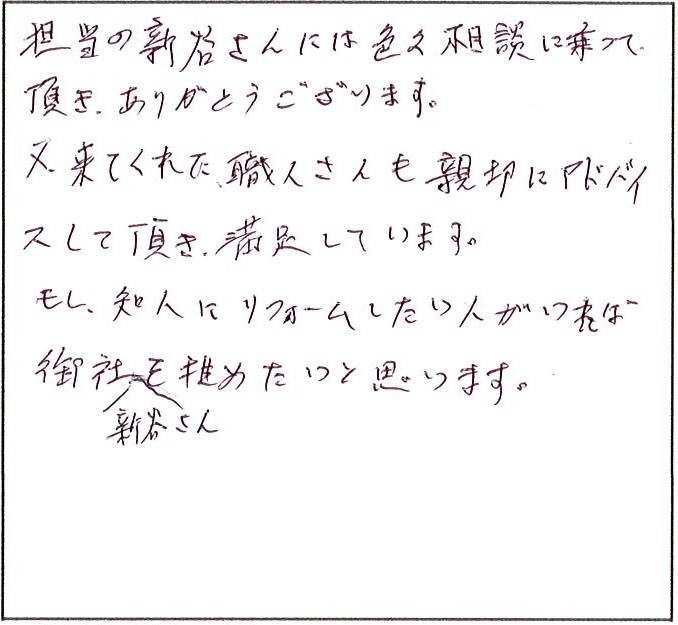 担当の新谷さんには色々相談に乗って
頂き、ありがとうございます。
又、来てくれた、職人さんも親切にアドバイ
スして頂き、満足しています。
もし、知人にリフォームしたい人がいれば
御社を推めたいと思います。
新谷さん